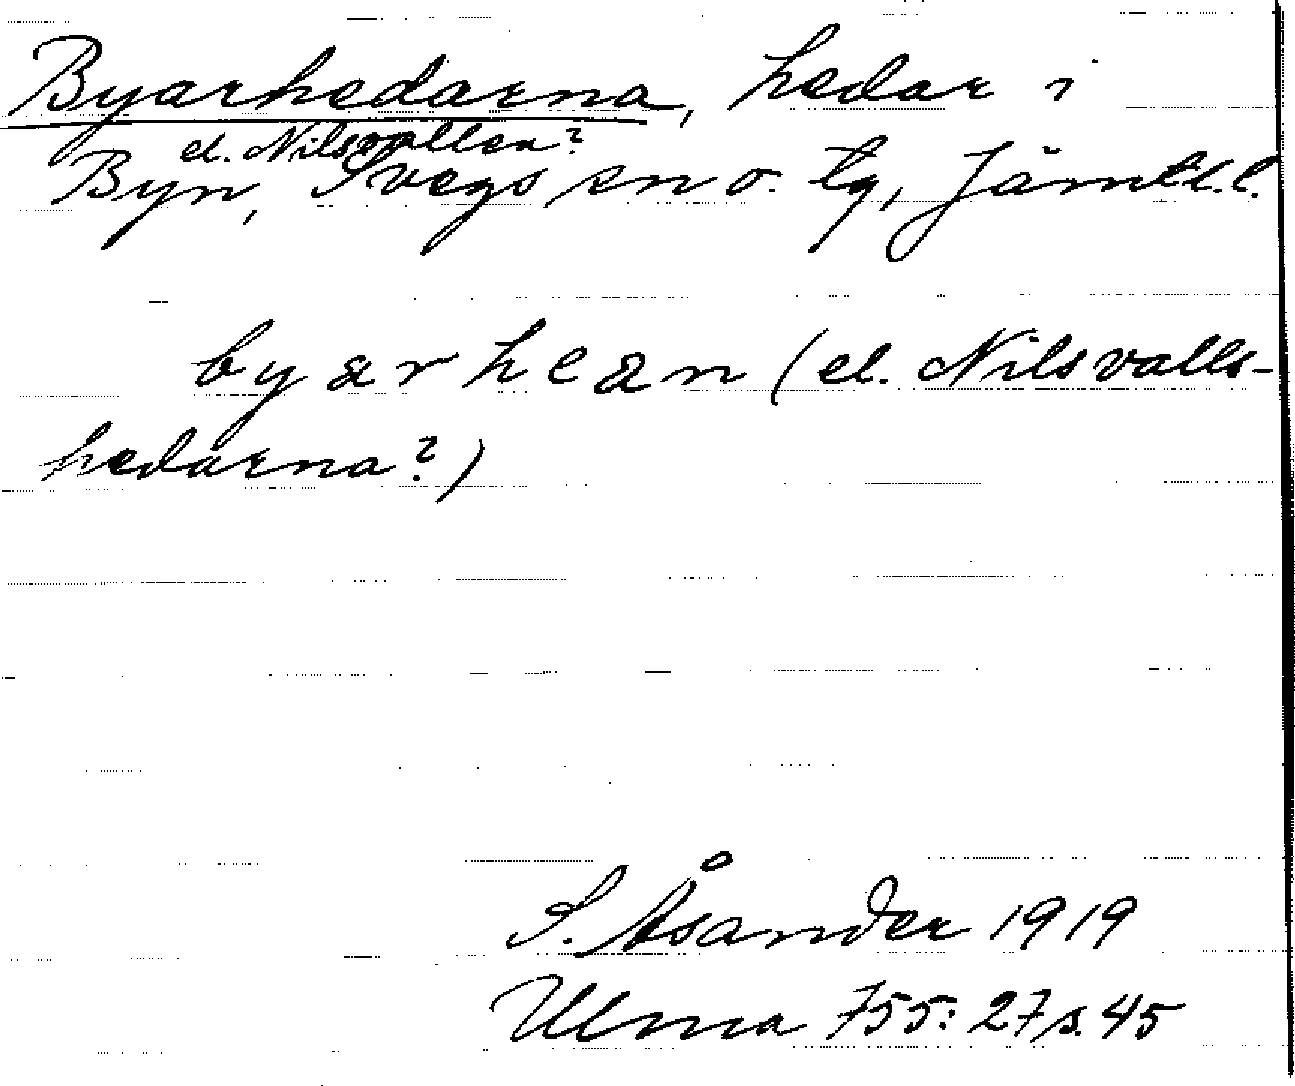 Byarhedarna, hedar i
el. Nilsvallen?
Byn, Svegs sn o. tg, Jämtl. l.
byarhean (el. Nilsvalls-
hedarna?)
S. Åsander 1919
Ulma 755:27 s. 45